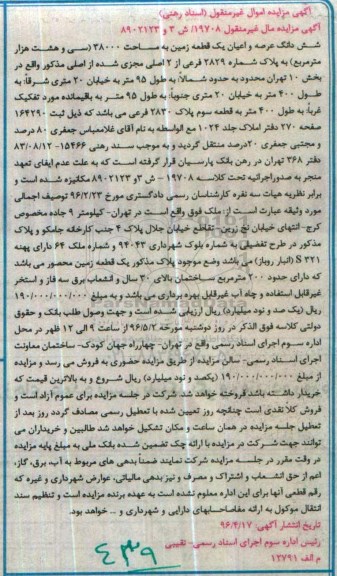 آگهی مزایده اموال غیرمنقول (اسناد رهنی)
آگهی مزایده مال غیرمنقول ۱۹۷۰۸/ ش ۳ و ۸۹۰۲۱۲۳
شش دانگ عرصه و اعیان یک قطعه زمین به مساحت ۳۸۰۰۰ (سی و هشت هزار
مترمربع) به پلاک شماره ۲۸۲۹ فرعی از ۲ اصلی مجزی شده از اصلی مذکور واقع در
بخش ۱۰ تهران محدود به حدود شمالاً: به طول ۹۵ متر به خیابان ۲۰ متری شرقاً: به
طول ۴۰۰ متر به خیابان ۲۰ متری جنوباً: به طول ۹۵ متر به باقیمانده مورد تفکیک
غرباً: به طول ۴۰۰ متر به قطعه سوم پلاک ۲۸۳۰ فرعی می باشد که ذیل ثبت ۱۶۴۲۹۰
صفحه ۲۷۰ دفتر املاک جلد ۱۰۲۴ مع الواسطه به نام آقای غلامعباس جعفری ۸۰ درصد
و مجتبی جعفری ۲۰درصد منتقل گردید و به موجب سند رهنی ۱۵۴۶۶- ۸۳/۰۸/۱۲
دفتر ۳۶۸ تهران در رهن بانک پارسیان قرار گرفته است که به علت عدم ایفای تعهد
منجر به صدوراجرائیه تحت کلاسه ۱۹۷۰۸ – ش ۳و ۸۹۰۲۱۲۳ مکانیزه شده است و
برابر نظریه هیات سه نفره کارشناسان رسمی دادگستری مورخ ۹۶/۲/۲۳ توصیف اجمالی
مورد وثیقه عبارت است از: ملک فوق واقع است در تهران- کیلومتر ۹ جاده مخصوص
کرج- انتهای خیابان نخ زرین- تقاطع خیابان جلال پلاک ۴ جنب کارخانه جامکو و پلاک
مذکور در طرح تفضیلی به شماره بلوک شهرداری ۹۴۰۴۳ و شماره ملک ۶۴ دارای پهنه
S ۳۲۱ (انبار روباز) می باشد وضع موجود پلاک مذکور یک قطعه زمین محصور می باشد
که دارای حدود ۲۰۰ مترمربع ساختمان بالای ۳۰ سال و انشعاب برق سه فاز و استخر
غیرقابل استفاده و چاه آب غیرقابل بهره برداری می باشد و به مبلغ ۱۹۰/۰۰۰/۰۰۰/۰۰۰
ریال (یک صد و نود میلیارد) ریال ارزیابی شده است و جهت وصول طلب بانک و حقوق
دولتی کلاسه فوق الذکر در روز دوشنبه مورخه ۹۶/۵/۲ از ساعت ۹ الی ۱۲ ظهر در محل
اداره سوم اجرای اسناد رسمی واقع در تهران- چهارراه جهان کودک- ساختمان معاونت
اجرای اسناد رسمی- سالن مزایده از طریق مزایده حضوری به فروش می رسد و مزایده
از مبلغ ۱۹۰/۰۰۰/۰۰۰/۰۰۰ (یکصد و نود میلیارد) ریال شروع و به بالاترین قیمت که
خریدار داشته باشد فروخته خواهد شد. شرکت در جلسه مزایده برای عموم آزاد است و
فروش کلا نقدی است چنانچه روز تعیین شده با تعطیل رسمی مصادف گردد روز بعد از
تعطیل جلسه مزایده در همان ساعت و مکان تشکیل خواهد شد طالبین و خریداران می
توانند جهت شرکت در مزایده با ارائه چک تضمین شده بانک ملی به مبلغ پایه مزایده
در وقت مقرر در جلسه مزایده شرکت نمایند ضمنا بدهی های مربوط به آب، برق، گاز،
اعم از حق انشعاب و اشتراک و مصرف و نیز بدهی مالیاتی، عوارض شهرداری و غیره که
رقم قطعی آنها برای این اداره معلوم نشده است به عهده برنده مزایده است و تنظیم سند
انتقال موکول به ارائه مفاصاحسابهای دارایی و شهرداری و ... خواهد بود.
تاریخ انتشار آگهی: ۹۶/۴/۱۷
رئیس اداره سوم اجرای اسناد رسمی- نقیبی
م الف ۱۲۷۹۱
۴۳۹